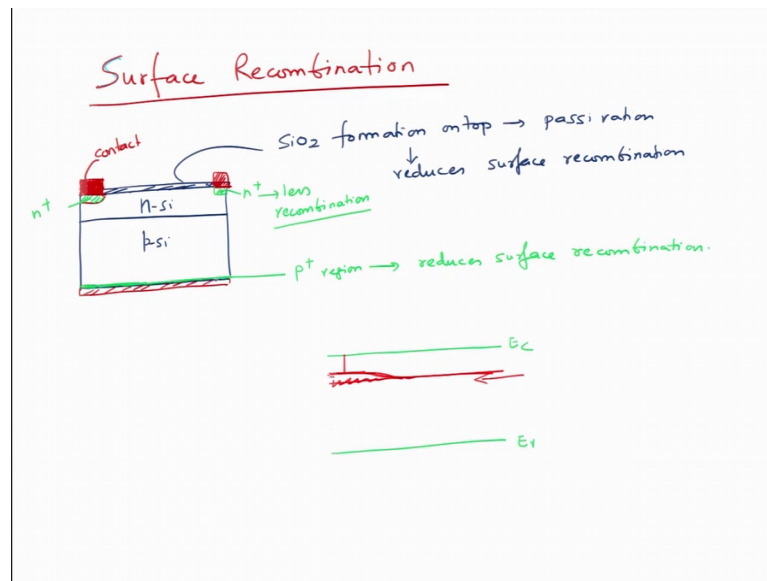 Surface Recombination
contact
SiO2 formation on top → passivation
↓
reduces surface recombination
n+
n+ → less
recombination
n-si
p-si
p+ region → reduces surface recombination.
Ec
Ev